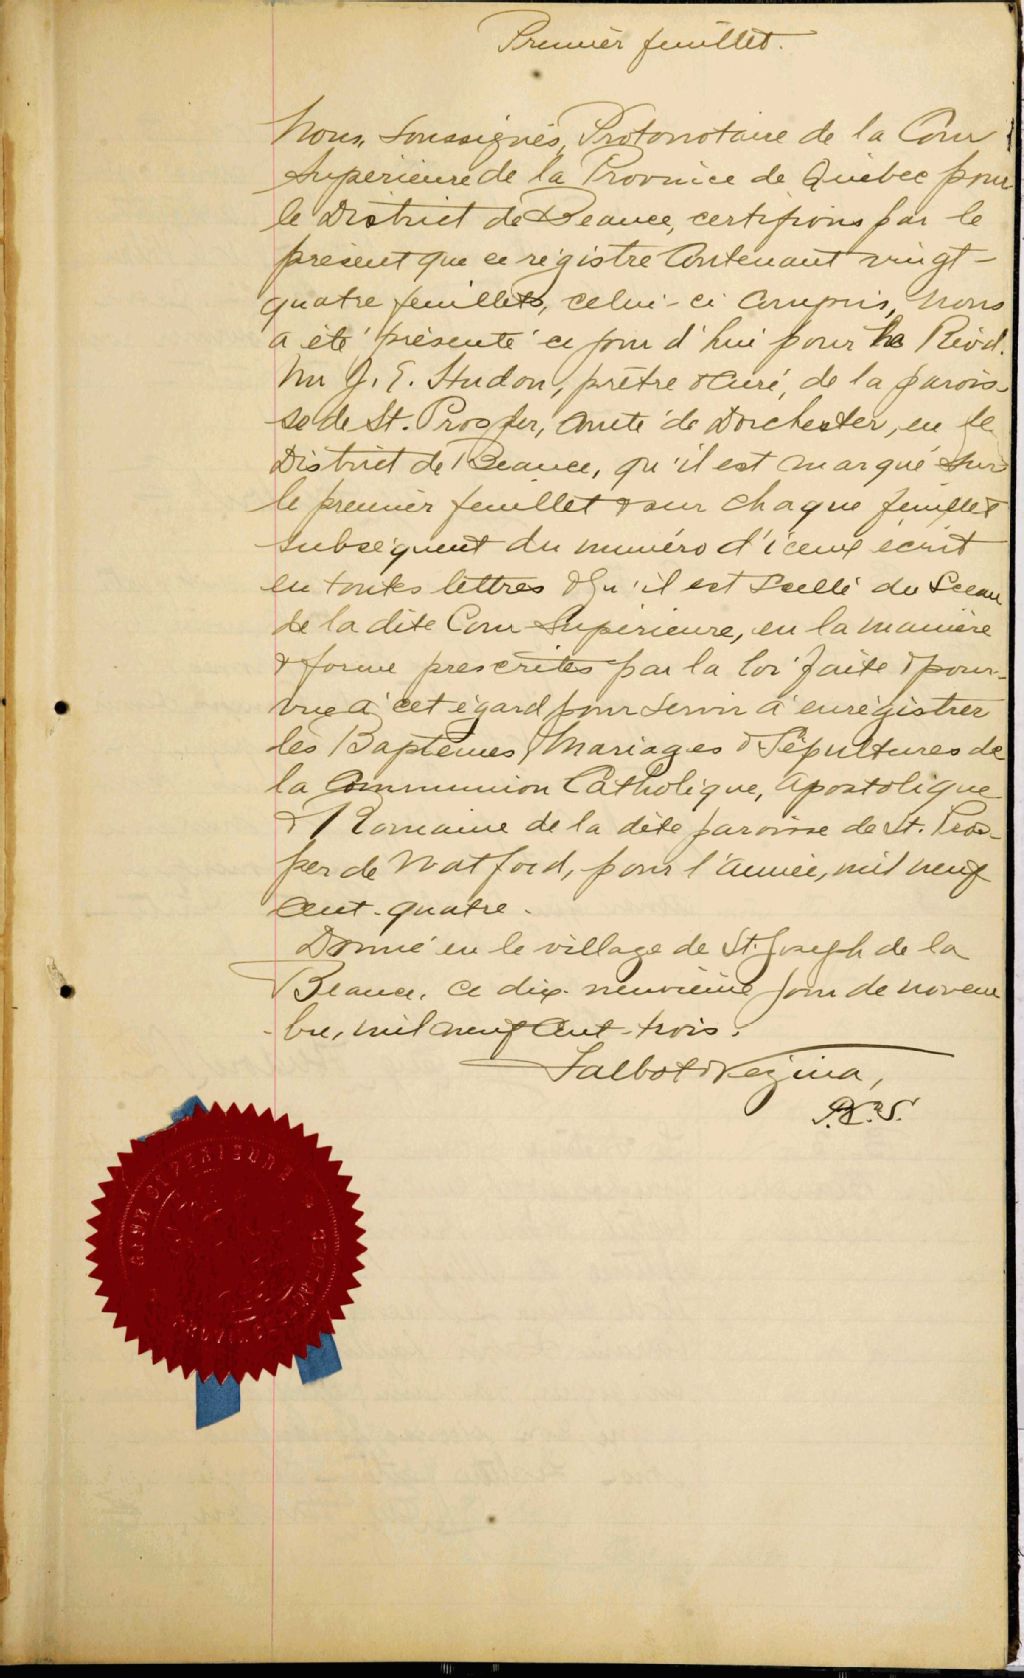 Premier feuillet.
Nous, Soussignés, Protonotaire de la Cour
Supérieure de la Province de Québec pour
le District de Beauce, certifions par le
présent que ce régistre Contenant vingt-
quatre feuillets, celui-ci Compris, nous
a été présenté ce jour d'hui pour le Révd.
Mr J. E. Hudon, prêtre & Curé, de la parois-
se de St. Prosper, Comté de Dorchester, en le
District de Beauce, qu'il est marqué sur
le premier feuillet & sur chaque feuillet
subséquent du numéro d'iceux écrit
en toutes lettres & qu'il est Scellé du Sceau
de la dite Cour Supérieure, en la manière
& forme prescrites par la loi faite & pour-
vue à cet égard pour servir à enrégistrer
les Baptêmes, Mariages & Sépultures de
la Communion Catholique, Apostolique
& Romaine de la dite paroisse de St. Pros-
per de Watford, pour l'année, mil neuf
Cent-quatre.
Donné en le village de St. Joseph de la
Beauce, ce dix-neuvième jour de novem
-bre, mil neuf Cent-trois.
Talbot & Vézina,
P.C.S.
COUR SUPERIEURE